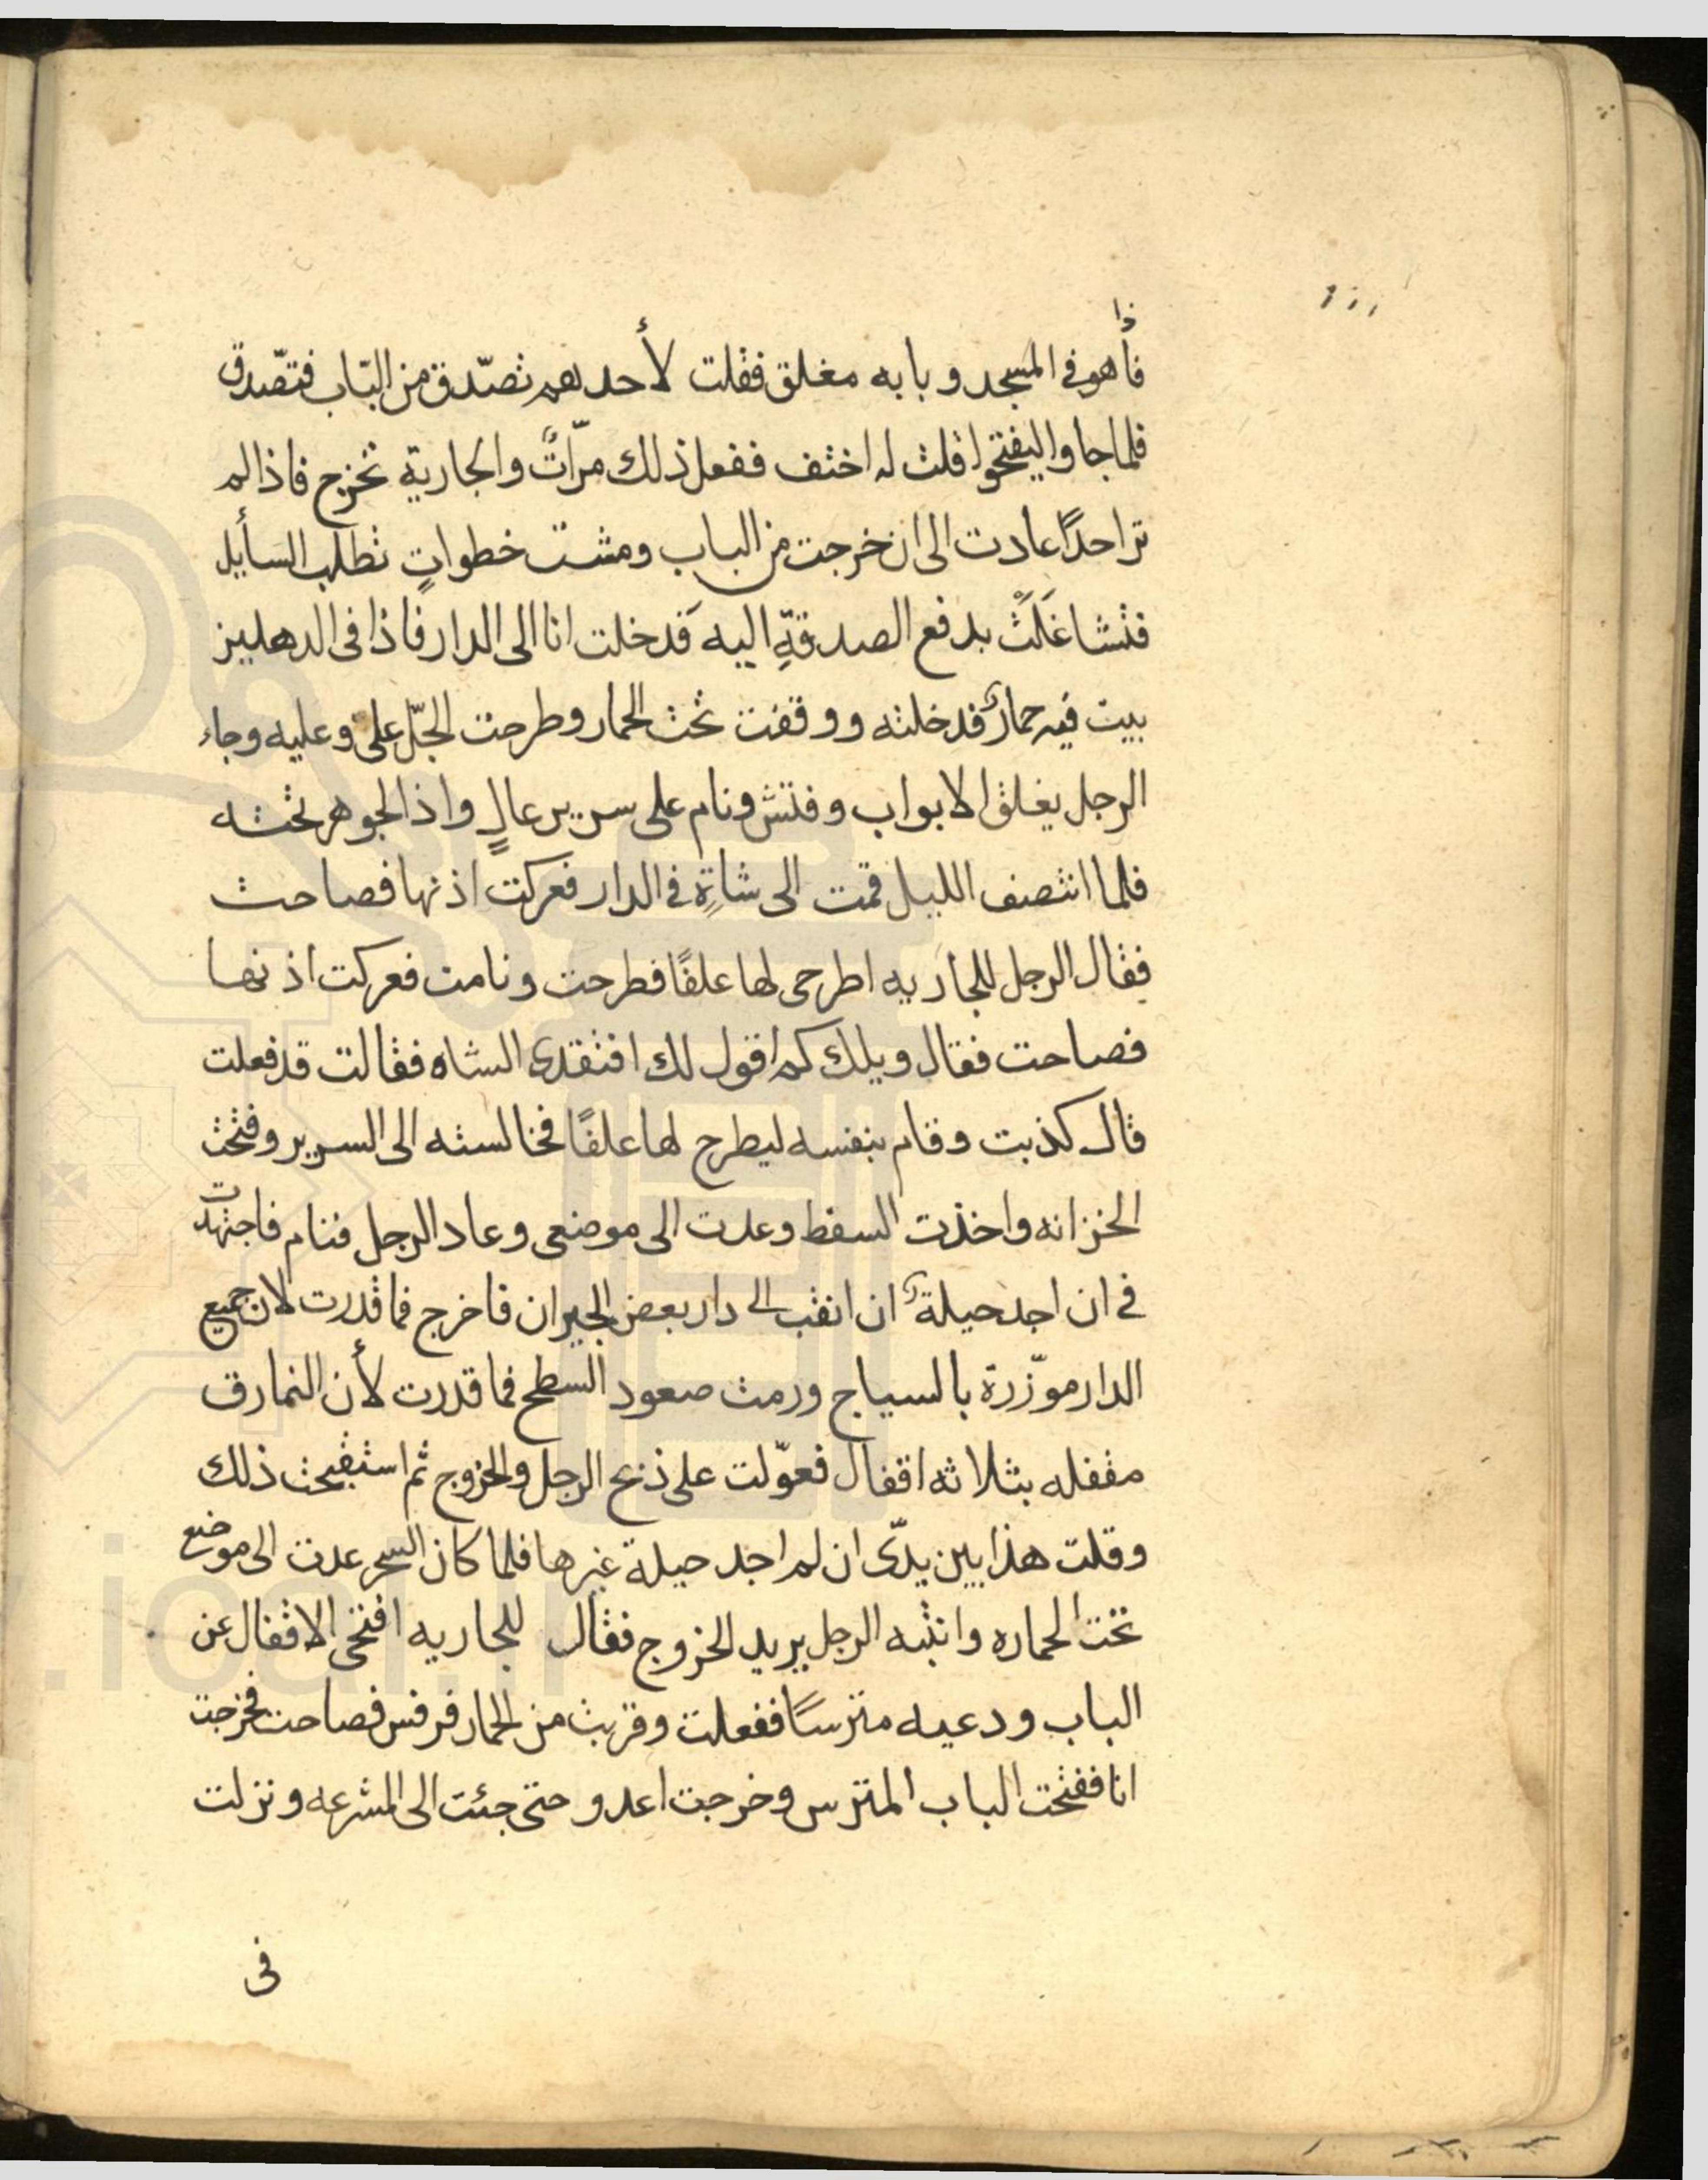 فأذا هو في المسجد وبابه مغلق فقلت لأحدهم تصّدق من البّاب فتصّدق
فلما جاوا ليفتحوا قلت له اختف ففعل ذلك مرّاتٌ والجارية تخرج فاذا لم
تر احدًا عادت الى ان خرجت من الباب ومشت خطواتٍ تطلب السأيل
فتشاغَلَتْ بدفع الصدقةِ اليه فدخلت انا الى الدار فاذا في الدهليز
بيت فيه حمارٌ فدخلته ووقفت تحت الحمار وطرحت الجلّ علي وعليه وجاء
الرجل يغلق الابواب وفتش ونام على سرير عالٍ واذا الجوهر تحته
فلما انتصف الليل قمت الى شاةٍ في الدار فعركت اذنها فصاحت
فقال الرجل للجاريه اطرحى لها علفًا فطرحت ونامت فعركت اذنها
فصاحت فقال ويلك كم اقول لك افتقدى الشاه فقالت قد فعلت
قال كذبت وقام بنفسه ليطرح لها علفًا فخالسته الى السرير وفتحت
الخزانه واخذت السفط وعدت الى موضعى وعاد الرجل فنام فاجتهدت
في ان اجد حيلةً ان انقب الى دار بعض الجيران فاخرج فما قدرت لان جميع
الدار موّزرة بالسياج ورمت صعود السطح فما قدرت لأن النمارق
مقفله بثلاثه اقفال فعوّلت على ذبح الرجل والخروج ثم استقبحت ذلك
وقلت هذا بين يدّى ان لم اجد حيلة غيرها فلما كان السحر عدت الى موضع
تحت الحماره وانتبه الرجل يريد الخروج فقال للجاريه افتحى الاقفال عن
الباب ودعيه مترسًا ففعلت وقربت من الحمار فرفس فصاحت فخرجت
انا ففتحت الباب المترس وخرجت اعدو حتى جئت الى المشرعه ونزلت
فى